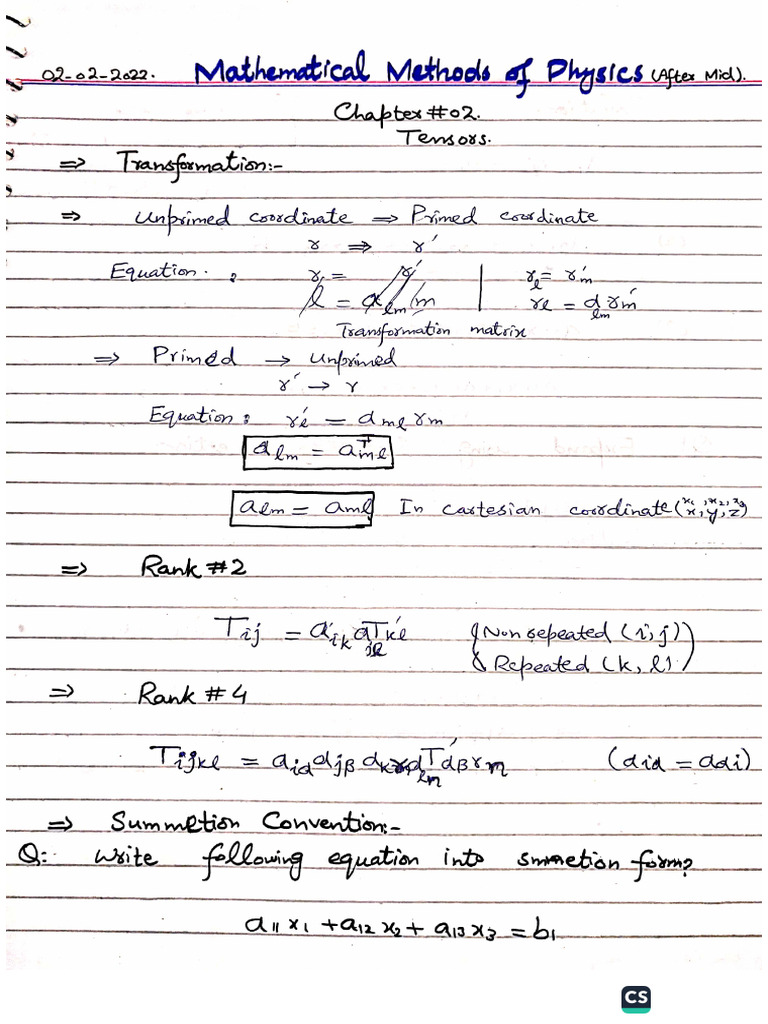 02-02-2022. Mathematical Methods of Physics (After Mid).
Chapter #02.
Tensors.
⇒ Transformation:-
⇒ Unprimed coordinate ⇒ Primed coordinate
r ⇒ r′
Equation: r_l = r′_m
r_l = a_lm r′_m
Transformation matrix
⇒ Primed → Unprimed
r′ → r
Equation: r′_l = a_ml r_m
a_lm = a^T_ml
a_lm = a_ml In cartesian coordinate (x, y, z) x₁, x₂, x₃
⇒ Rank #2
T_ij = a_ik a_jl T′_kl (Non repeated (i, j))
Repeated (k, l)
⇒ Rank #4
T_ijkl = a_iα a_jβ (a_iα = a_αi)
⇒ Summetion Convention:-
Q:- Write following equation into form?
a₁₁x₁ + a₁₂x₂ + a₁₃x₃ = b₁
CS